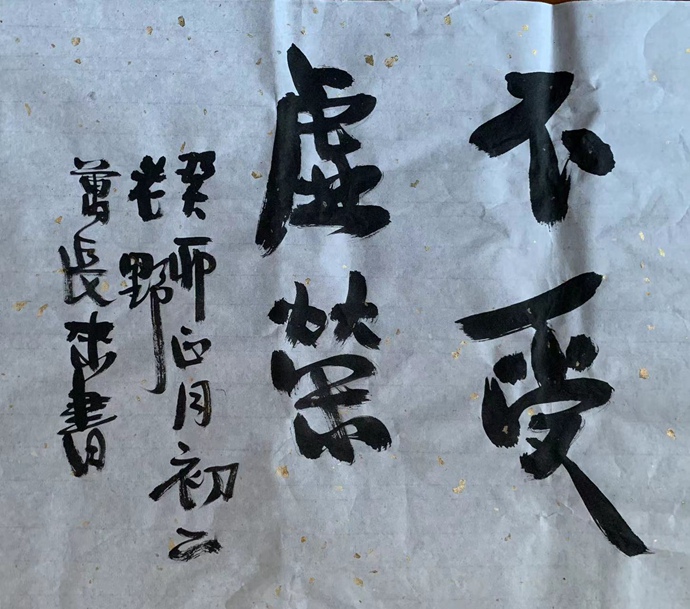 不受
虚榮
癸卯正月初二
老野
萬長書